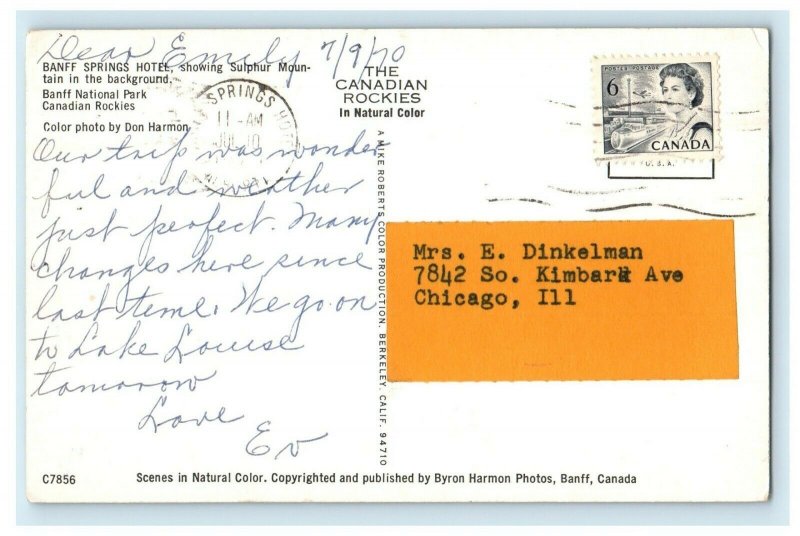 Dear Emily 7/9/70
BANFF SPRINGS HOTEL, showing Sulphur Moun-
tain in the background.
Banff National Park
Canadian Rockies
Color photo by Don Harmon
THE
CANADIAN
ROCKIES
In Natural Color
SPRINGS HOT
11 -AM
JUL 10
POSTES POSTAGE
6
CANADA
U.S.A.
Our trip was wonder
ful and weather
just perfect. Many
changes here since
last time. We go on
to Lake Louise
tomorrow
Love
Ev
A MIKE ROBERTS COLOR PRODUCTION. BERKELEY. CALIF. 94710
Mrs. E. Dinkelman
7842 So. Kimbark Ave
Chicago, Ill
C7856
Scenes in Natural Color. Copyrighted and published by Byron Harmon Photos, Banff, Canada